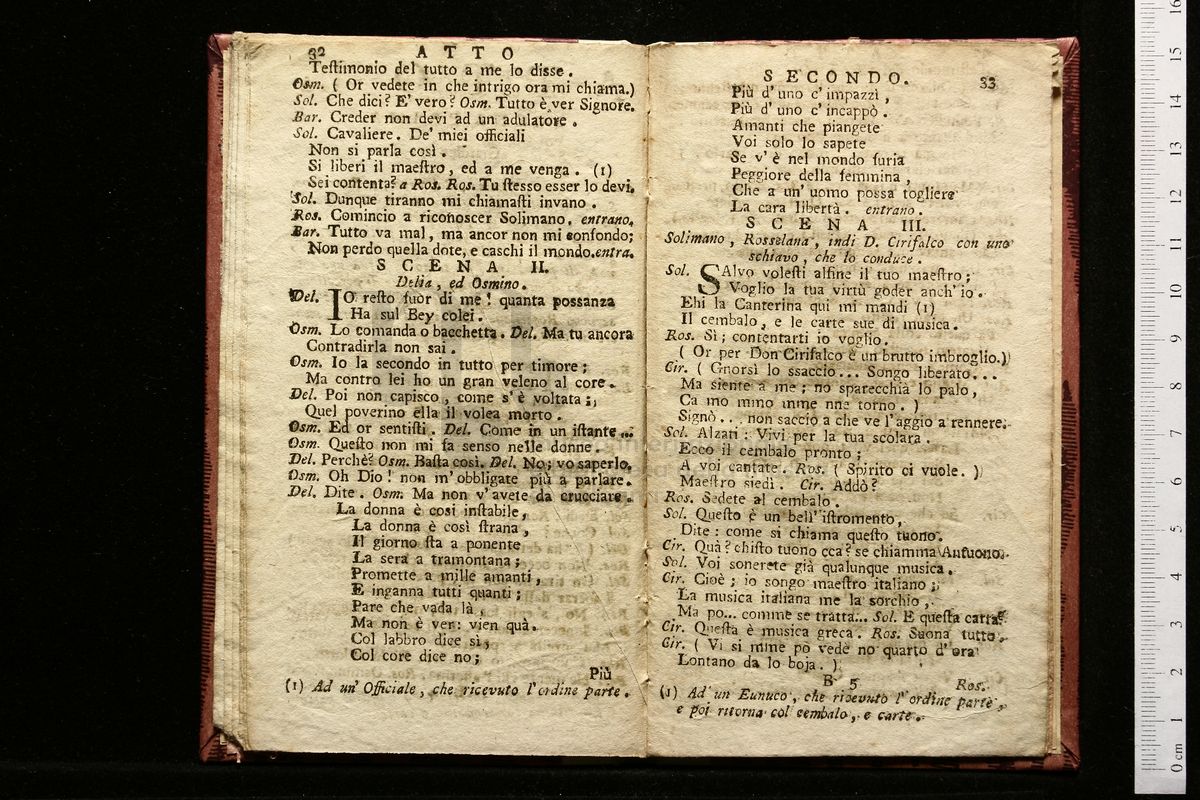 32 ATTO
Teſtimonio del tutto a me lo disse.
Osm. ( Or vedete in che intrigo ora mi chiama.)
Sol. Che dici? E' vero? Osm. Tutto è ver Signore.
Bar. Creder non devi ad un adulatore.
Sol. Cavaliere. De' miei officiali
Non si parla così.
Si liberi il maeſtro, ed a me venga. (1)
Sei contenta? a Ros. Ros. Tu ſtesso esser lo devi.
Sol. Dunque tiranno mi chiamaſti invano.
Ros. Comincio a riconoscer Solimano. entrano.
Bar. Tutto va mal, ma ancor non mi confondo;
Non perdo quella dote, e caschi il mondo. entra.
SCENA II.
Delia, ed Osmino.
Del. IO reſto fuor di me! quanta possanza
Ha sul Bey colei.
Osm. Lo comanda o bacchetta. Del. Ma tu ancora
Contradirla non sai.
Osm. Io la secondo in tutto per timore;
Ma contro lei ho un gran veleno al core.
Del. Poi non capisco, come s'è voltata;
Quel poverino ella il volea morto.
Osm. Ed or sentiſti. Del. Come in un iſtante...
Osm. Queſto non mi fa senso nelle donne.
Del. Perchè? Osm. Baſta così. Del. No; vo saperlo.
Osm. Oh Dio! non m'obbligate più a parlare.
Del. Dite. Osm. Ma non v'avete da crucciare.
La donna è così inſtabile,
La donna è così ſtrana,
Il giorno ſta a ponente
La sera a tramontana;
Promette a mille amanti,
E inganna tutti quanti;
Pare che vada là,
Ma non è ver: vien quà.
Col labbro dice sì,
Col core dice no;
Più
(1) Ad un' Officiale, che ricevuto l'ordine parte.
SECONDO. 33
Più d'uno c'impazzì,
Più d'uno c'incappò.
Amanti che piangete
Voi solo lo sapete
Se v'è nel mondo furia
Peggiore della femmina,
Che a un'uomo possa togliere
La cara libertà. entrano.
SCENA III.
Solimano, Rosselana, indi D. Cirifalco con uno
schiavo, che lo conduce.
Sol. SAlvo voleſti alfine il tuo maeſtro;
Voglio la tua virtù goder anch'io.
Ehi la Canterina qui mi mandi (1)
Il cembalo, e le carte sue di musica.
Ros. Sì; contentarti io voglio.
( Or per Don Cirifalco è un brutto imbroglio.)
Cir. ( Gnorsì lo ssaccio... Songo liberato...
Ma siente a me; no sparecchià lo palo,
Ca mo mmo mme nne torno. )
Signò... non saccio a che ve l'aggio a rennere.
Sol. Alzati: Vivi per la tua scolara.
Ecco il cembalo pronto;
A voi cantate. Ros. ( Spirito ci vuole. )
Maeſtro siedi. Cir. Addò?
Ros. Sedete al cembalo.
Sol. Queſto è un bell'iſtromento,
Dite: come si chiama queſto tuono.
Cir. Quà? chiſto tuono cca? se chiamma Antuono.
Sol. Voi sonerete già qualunque musica.
Cir. Cioè; io songo maeſtro italiano;
La musica italiana me la sorchio,
Ma po... comme se tratta... Sol. E queſta carta?
Cir. Queſta è musica greca. Ros. Suona tutto.
Cir. ( Vi si mme pò vede no quarto d'ora
Lontano da lo boja. )
B 5 Ros.
(1) Ad un Eunuco, che ricevuto l'ordine parte,
e poi ritorna col cembalo, e carte.